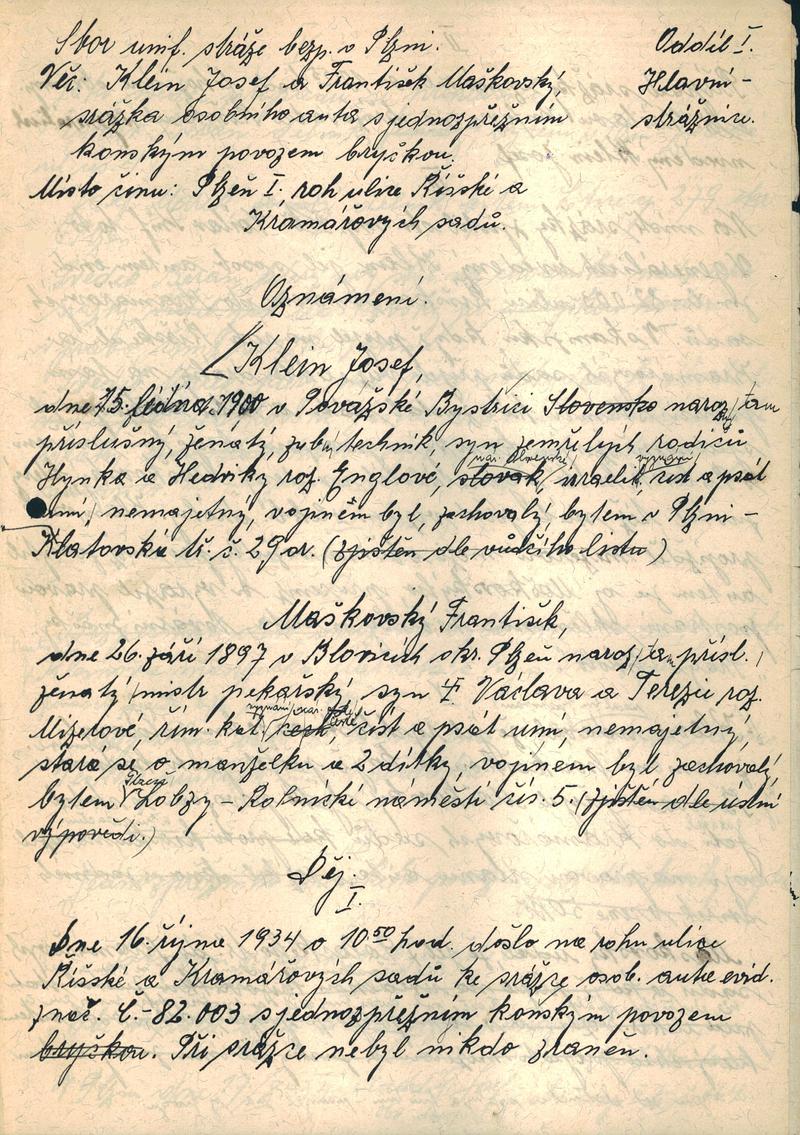 Sbor unif. stráže bezp. v Plzni.
Oddíl I.
Věc: Klein Josef a František Maškovský
Hlavní -
srážka osobního auta s jednozpřežním
strážnice.
koňským povozem bryčkou.
Místo činu: Plzeň I., roh ulice Říšské a
Kramářových sadů.
Oznámení.
Klein Josef,
dne 15. ledna 1900 v Považské Bystrici Slovensko naroz. tam
příslušný, ženatý, zub. technik, syn zemřelých rodičů
nár. slovenské, vyznání
Hynka a Hedviky roz. Englové, slovák, izraelit, číst a psát
umí, nemajetný, vojínem byl, zachovalý, bytem v Plzni -
Klatovská tř. č. 29 a. (zjištěn dle vůdčího listu)
Maškovský František,
dne 26. září 1897 v Blovicích okr. Plzeň naroz. tam přísl.,
ženatý, mistr pekařský, syn Václava a Terezie roz.
vyznání, nár. české
Mizerové, řím. kat. čech, číst a psát umí, nemajetný,
stará se o manželku a 2 dítky, vojínem byl zachovalý,
bytem Lobzy - Rolnické náměstí čís. 5. (zjištěn dle ústní
výpovědi.)
Děj.
I.
Dne 16. října 1934 o 10 50 hod. došlo na rohu ulice
Říšské a Kramářových sadů ke srážce osob. auta evid.
znač. Č.-82.003 s jednozpřežním koňským povozem
bryčkou. Při srážce nebyl nikdo zraněn.